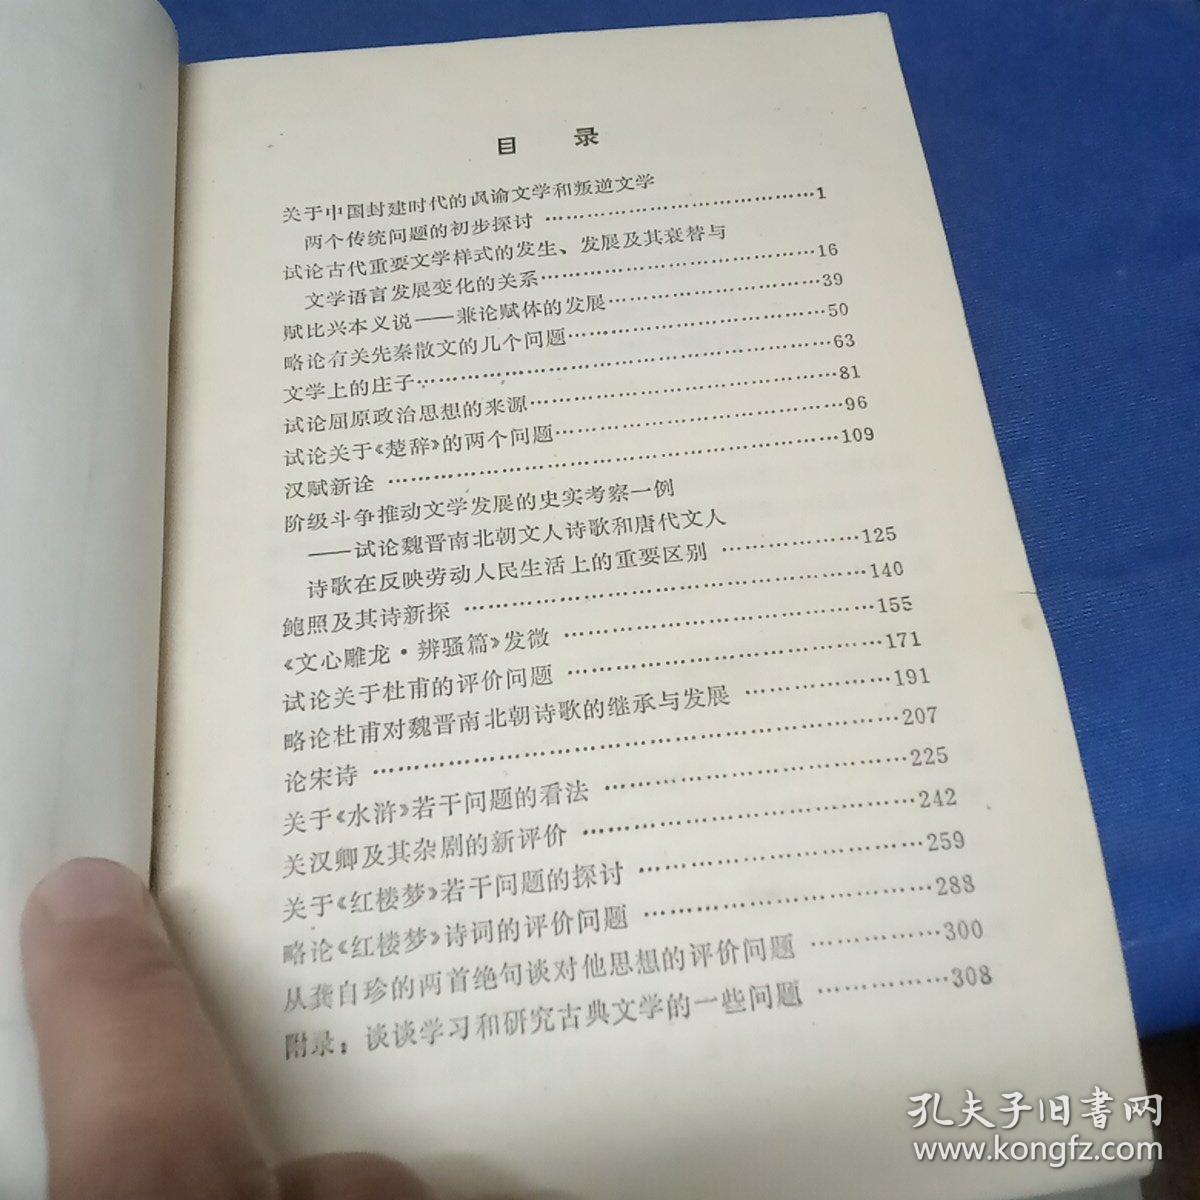 目 录
关于中国封建时代的讽谕文学和叛逆文学
两个传统问题的初步探讨 ……………………………1
试论古代重要文学样式的发生、发展及其衰替与
文学语言发展变化的关系……………………………16
赋比兴本义说——兼论赋体的发展……………………39
略论有关先秦散文的几个问题…………………………50
文学上的庄子……………………………………………63
试论屈原政治思想的来源………………………………81
试论关于《楚辞》的两个问题……………………………96
汉赋新诠 ………………………………………………109
阶级斗争推动文学发展的史实考察一例
——试论魏晋南北朝文人诗歌和唐代文人
诗歌在反映劳动人民生活上的重要区别 ……………125
鲍照及其诗新探 ………………………………………140
《文心雕龙·辨骚篇》发微 ……………………………155
试论关于杜甫的评价问题 ……………………………171
略论杜甫对魏晋南北朝诗歌的继承与发展 …………191
论宋诗 …………………………………………………207
关于《水浒》若干问题的看法 …………………………225
关汉卿及其杂剧的新评价 ……………………………242
关于《红楼梦》若干问题的探讨 ………………………259
略论《红楼梦》诗词的评价问题 ………………………288
从龚自珍的两首绝句谈对他思想的评价问题 ………300
附录：谈谈学习和研究古典文学的一些问题 …………308
孔夫子旧书网
www.kongfz.com